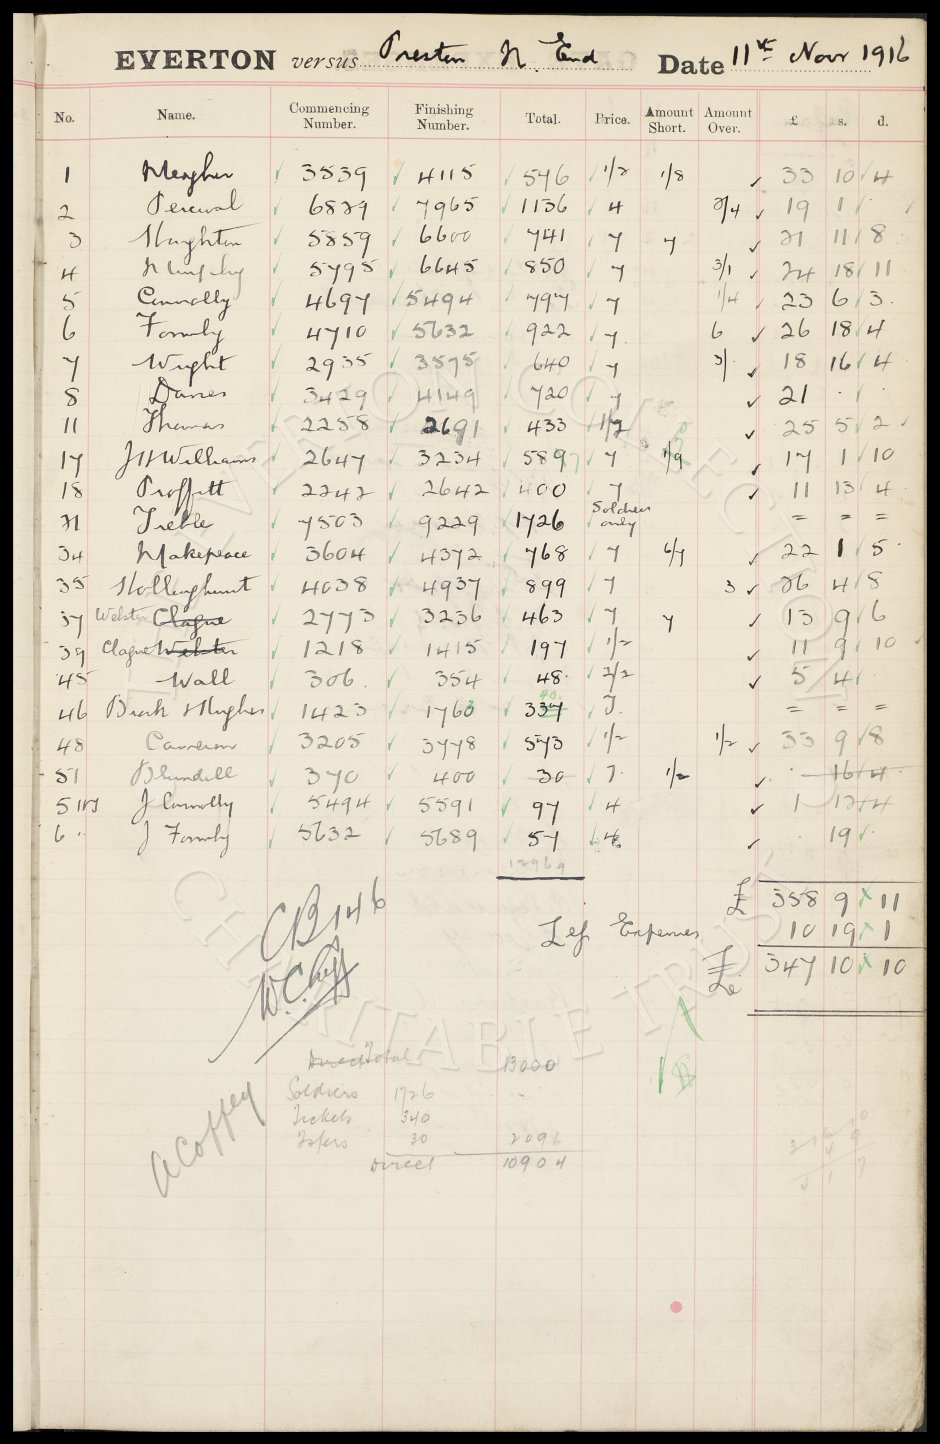 EVERTON versus Preston N. End Date 11th Nov 1916
No. Name. Commencing Number. Finishing Number. Total. Price. Amount Short. Amount Over. £ s. d.
1 Meagher 3539 4115 576 1/2 1/8 33 10 4
2 Percival 6829 7965 1136 4 2/4 19 1 .
3 Houghton 5859 6600 741 7 7 21 11 8
4 Murphy 5795 6645 850 7 3/1 24 18 11
5 Connolly 4697 5494 797 7 1/4 23 6 3
6 Formby 4710 5632 922 7 6 26 18 4
7 Wright 2935 3575 640 7 3/. 18 16 4
8 Davies 3429 4149 720 7 21 . .
11 Thomas 2258 2691 433 1/2 25 5 2
17 J H Williams 2647 3234 589 7 7 1/9 17 1 10
18 Proffitt 2242 2642 400 7 11 13 4
21 Treble 7503 9229 1726 Soldiers only = = =
34 Makepeace 3604 4372 768 7 6/7 22 1 5
35 Hollinghurst 4038 4937 899 7 3 26 4 8
37 Webster Clague 2773 3236 463 7 7 13 9 6
39 Clague Webster 1218 1415 197 1/2 11 9 10
45 Wall 306 354 48 2/2 5 4
40
46 Hughes 1423 1763 337 7. = = =
48 Cameron 3205 3778 573 1/2 1/2 33 9 8
51 Blundell 370 400 30 7 1/2 . 16 4
5 J Connolly 5494 5591 97 4 1 12 4
6 J Formby 5632 5689 57 4 . 19 .
12969
£ 358 9 11
Less Expenses 10 19 1
£ 347 10 10
CB 146
W. Cuff
Direct Total 13000
Soldiers 1726
Tickets 340
30 2096
Direct 10904
A Coffey
EVERTON COLLECTION
CHARITABLE TRUST